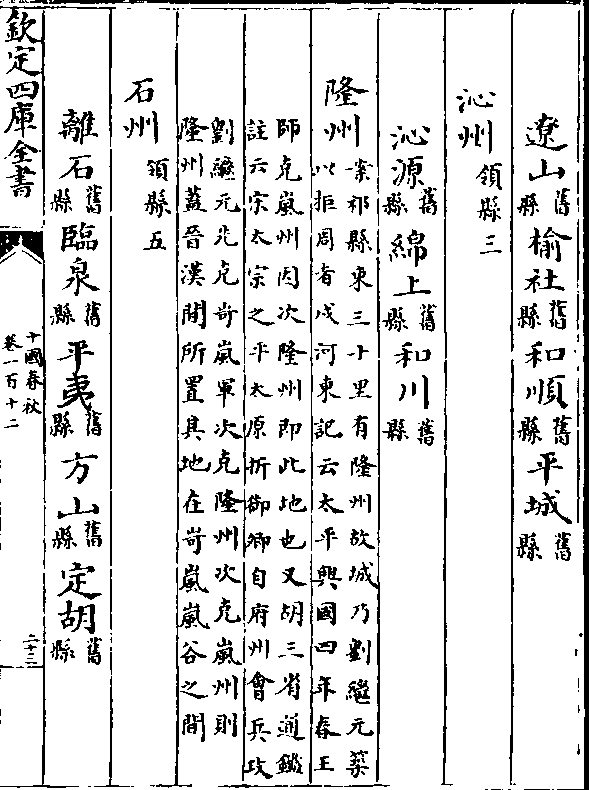 遼山舊縣榆社舊縣和順舊縣平城舊縣
沁州領縣三
沁源舊縣綿上舊縣和川舊縣
隆州案祁縣東三十里有隆州故城乃劉繼元築
以拒周者戍河東記云太平興國四年春王
師克嵐州因次隆州即此地也又胡三省通鑑
註云宋太宗之平太原折御卿自府州會兵攻
劉繼元先克岢嵐軍次克隆州次克嵐州則
隆州蓋晉漢間所置其地在岢嵐嵐谷之間
石州領縣五
離石舊縣臨泉舊縣平夷舊縣方山舊縣定胡舊縣
欽定四庫全書
十國春秋
卷一百十二
二十三